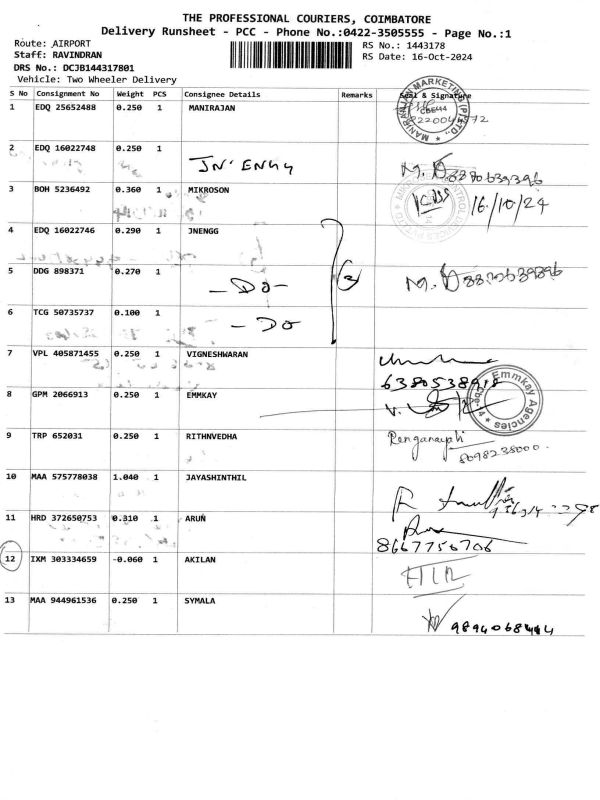 THE PROFESSIONAL COURIERS, COIMBATORE
Delivery Runsheet - PCC - Phone No.:0422-3505555 - Page No.:1
Route: AIRPORT
RS No.: 1443178
Staff: RAVINDRAN
RS Date: 16-Oct-2024
DRS No.: DCJB144317801
Vehicle: Two Wheeler Delivery
S No Consignment No Weight PCS Consignee Details Remarks Seal & Signature
1 EDQ 25652488 0.250 1 MANIRAJAN
2 EDQ 16022748 0.250 1 JN' ENGG
8870639396
3 BOH 5236492 0.360 1 MIKROSON 16/10/24
4 EDQ 16022746 0.290 1 JNENGG
5 DDG 898371 0.270 1 -DO-
8870639396
6 TCG 50735737 0.100 1 -DO
7 VPL 405871455 0.250 1 VIGNESHWARAN
6380538918
8 GPM 2066913 0.250 1 EMMKAY Emmkay Agencies
9 TRP 652031 0.250 1 RITHNVEDHA Renganayaki
8098238000.
10 MAA 575778038 1.040 1 JAYASHINTHIL
11 HRD 372650753 0.310 1 ARUN
8667756706
12 IXM 303334659 -0.060 1 AKILAN
13 MAA 944961536 0.250 1 SYMALA
9894068444